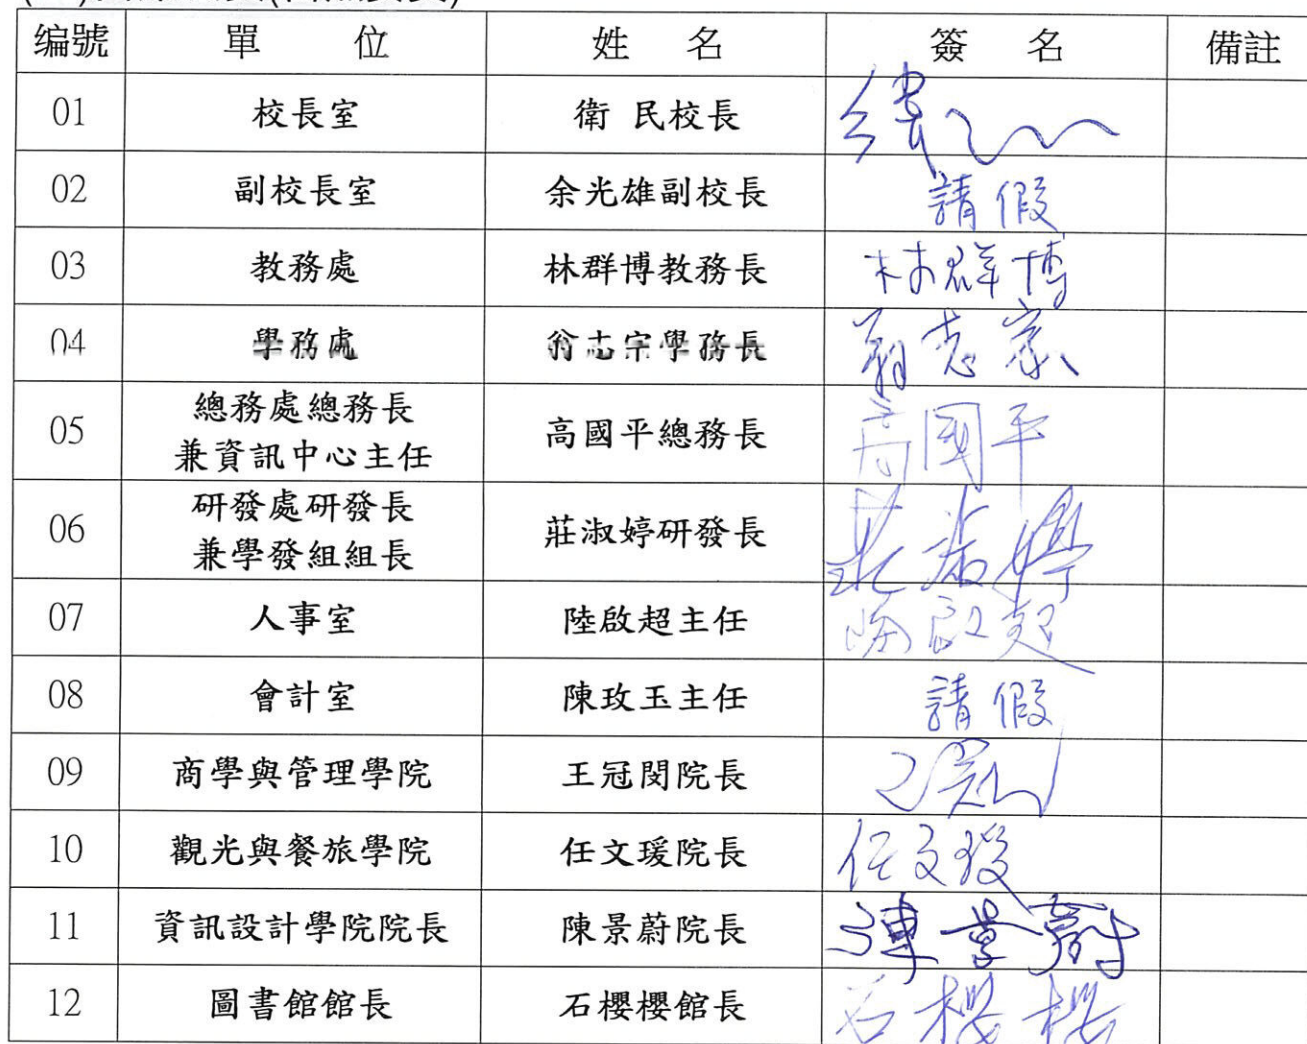 编號 單 位 姓 名 簽 名 備註
01 校長室 衛 民校長
02 副校長室 余光雄副校長 請假
03 教務處 林群博教務長 林群博
04 學務處 翁志宗學務長 翁志宗
05 總務處總務長
兼資訊中心主任 高國平總務長 高國平
06 研發處研發長
兼學發組組長 莊淑婷研發長 莊淑婷
07 人事室 陸啟超主任 陸啟超
08 會計室 陳玫玉主任 請假
09 商學與管理學院 王冠閔院長
10 觀光與餐旅學院 任文瑗院長 任文瑗
11 資訊設計學院院長 陳景蔚院長 陳景蔚
12 圖書館館長 石櫻櫻館長 石櫻櫻